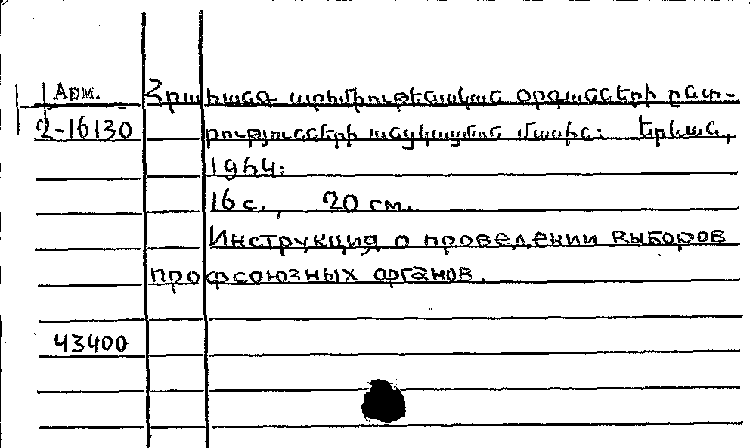 Арм.
2-16130
Հրահանգ արհմիութենական օրգանների ընտ-
րությունների անցկացման մասին: Երևան,
1954:
16 с., 20 см.
Инструкция о проведении выборов
профсоюзных органов.
43400